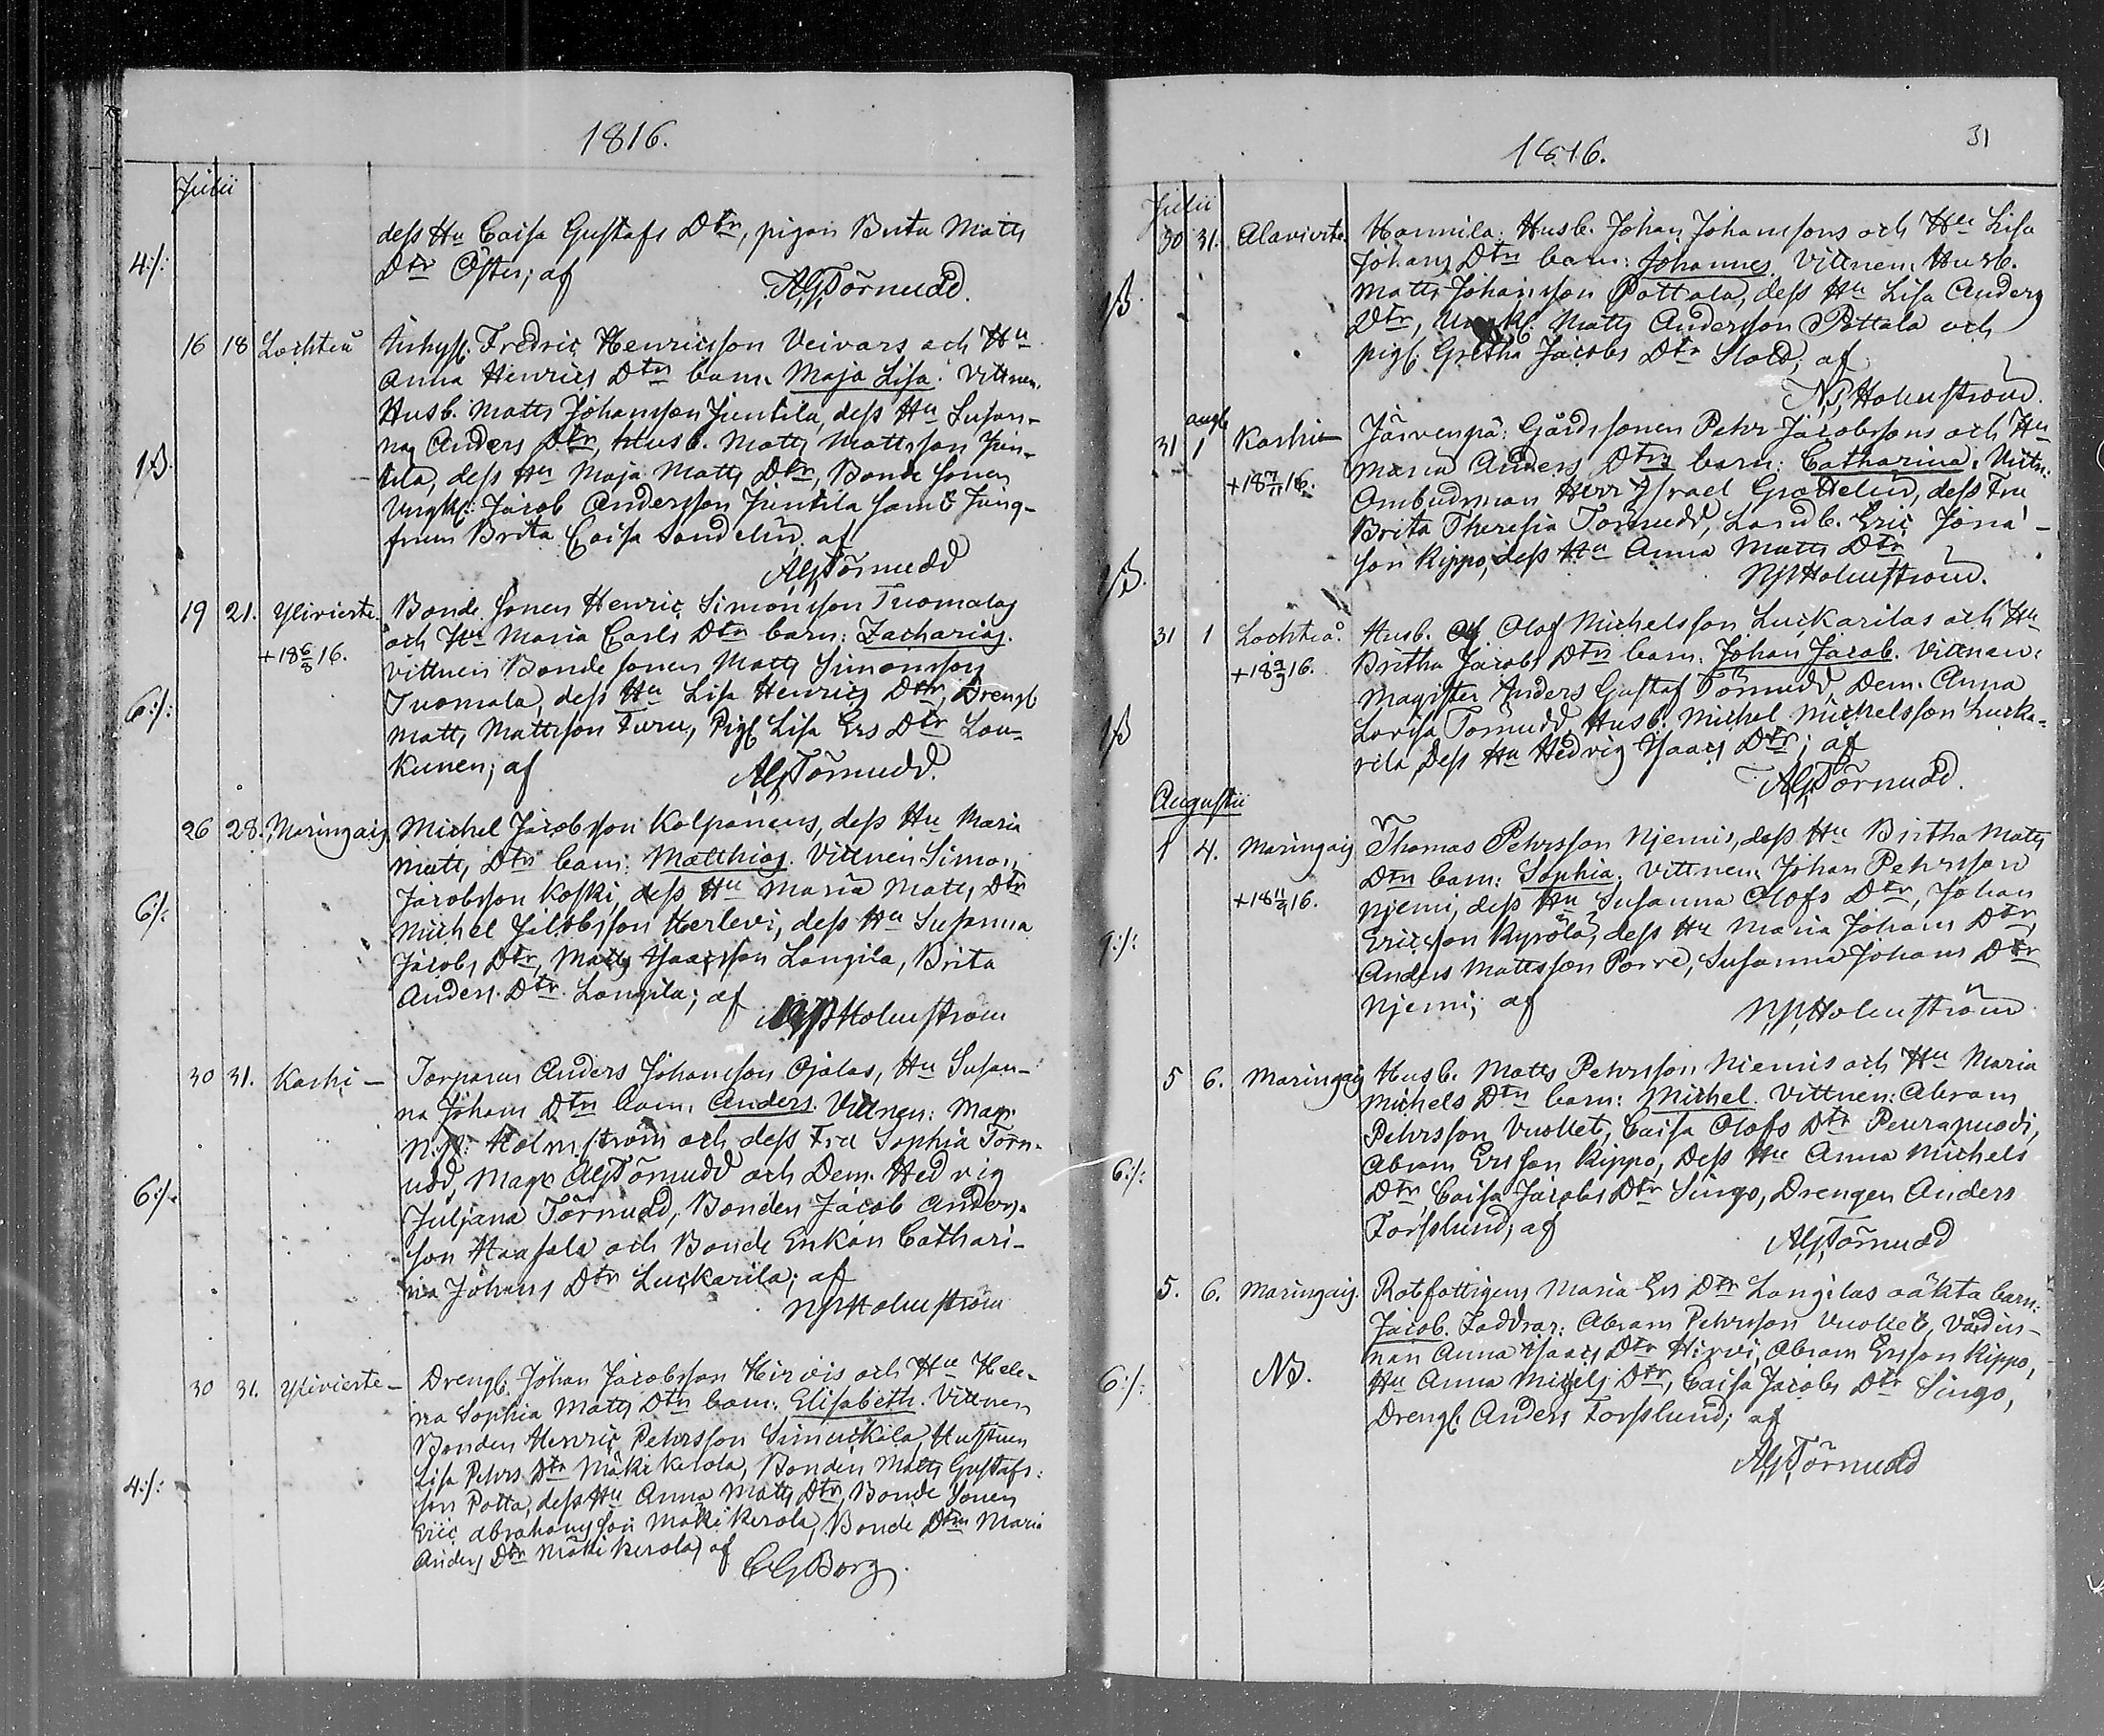 1816.
Julii
dess Hu Caisa Gustafs Dtr, pigan Brita Matts
4:/: Dtr Öster; af AGTörnudd.
16 18 Lochteå Inhys. Fredric Henricsson Veivars och Hu
Anna Henrics Dtrs barn: Maja Lisa. Vittnen.
Husb. Matts Johansson Juntila, dess Hu Susan-
na Anders Dtr, Husb. Matts Mattsson Jun-
1ß. tila, dess Hu Maja Matts Dtr, Bonde sonen
Ungk: Jacob Andersson Juntila samt Jung-
frun Brita Caisa Sandelin, af
AGTörnudd
19 21. Ylivieste Bonde sonen Henric Simonsson Tuomalas
och Hu Maria Carls Dtrs barn: Zacharias.
+18 6/8 16. vittnen Bonde sonen Matts Simonsson
Tuomala, dess Hu Lisa Henrics Dtr, Dreng.
6:/: Matts Mattsson Turu, Pig. Lisa Ers Dtr Lou-
kunen; af AGTörnudd.
26 28. Maringais Michel Jacobsson Kolpanens, dess Hu Maria
Matts Dtrs barn: Matthias. Vittnen Simon
Jacobsson Koski, dess Hu Maria Matts Dtr
6:/: Michel Jacobsson Herlevi, dess Hu Susanna
Jacobs Dtr, Matts Isacsson Langila, Brita
Anders Dtr. Langila; af NPHolmström
30 31. Karhi— Torparen Anders Johansson Ojalas, Hu Susan-
na Johans Dtrs barn. Anders. Vittnen: Mag:
N.P. Holmström och dess Fru Sophia Törn-
udd, Mag: AGTörnudd och Dem. Hedvig
6:/: Juljana Törnudd, Bonden Jacob Anders-
son Haasala och Bonde Enkan Cathari-
na Johans Dtr Luckarila; af
NPHolmström
30 31. Ylivieste— Dreng. Johan Jacobsson Hirvis och Hu Hele-
na Sophia Matts Dtrs barn: Elisabeth. Vittnen
Bonden Henric Pehrsson Simukkala, Hustrun
Lisa Pehrs Dtr Mäkikerola, Bonden Matts Gustafs:
4:/: son Potta, dess Hu Anna Matts Dtr, Bonde sonen
Eric Abrahamsson Mäkikerola, Bonde Dtrn Maria
Anders Dtr Mäkikerola; af CGBorg.
1816. 31
Julii
30 31. Alavivite. Hannila: Husb. Johan Johanssons och Hu Lisa
Johans Dtrs barn: Johannes. Vittnen: Husb.
1ß. Matts Johansson Pottala, dess Hu Lisa Anders
Dtr, Ungk. Matts Andersson Pottala och
pig. Gretha Jacobs Dtr Slotd; af
NPHolmström.
aug.
31 1 Karhi— Järvenpä: Gårdssonen Pehr Jacobssons och Hu
Maria Anders Dtrs barn: Catharina. Vittn:
+18 7/11 16. Ombudsman Herr Israel Grættelin, dess Fru
Brita Theresia Törnudd, Landb. Eric Jona-
1ß. son Rippo, dess Hu Anna Matts Dtr
NPHolmström.
31 1 Lochteå. Husb. Olof Michelsson Luckarilas och Hu
+18 9/9 16. Britha Jacobs Dtrs barn. Johan Jacob. Vittnen:
Magister Anders Gustaf Törnudd, Dem. Anna
1ß Lovisa Törnudd, Husb. Michel Michelsson Lucka-
rila, Dess Hu Hedvig Isaacs Dtr; af
AGTörnudd.
Augustii
1 4. Maringais Thomas Pehrsson Njemis, dess Hu Britha Matts
Dtrs barn: Sophia. Vittnen: Johan Pehrsson
+18 11/9 16. Njemi, dess Hu Susanna Olofs Dtr, Johan
9:/: Ericsson Kyrölä, dess Hu Maria Johans Dtr,
Anders Mattsson Porre, Susanna Johans Dtr
Njemi; af NPHolmström
5 6. Maringais Husb. Matts Pehrsson Niemis och Hu Maria
Michels Dtrs barn: Michel. Vittnen: Abram
Pehrsson Vuollet, Caisa Olofs Dtr Peurapuodi,
6:/: Abram Ersson Rippo, Dess Hu Anna Michels
Dtr, Caisa Jacobs Dtr Singo, Drengen Anders
Forsslund; af AGTörnudd
5. 6. Maringais. Rotfattigens Maria Ers Dtr Langilas oäkta barn:
Jacob. Faddrar: Abram Pehrsson Vuollet, Värdin-
NB. nan Anna Isaacs Dtr Hirvi, Abram Ersson Rippo,
6:/: Hu Anna Michels Dtr, Caisa Jacobs Dtr Singo,
Dreng. Anders Forsslund; af
AGTörnudd